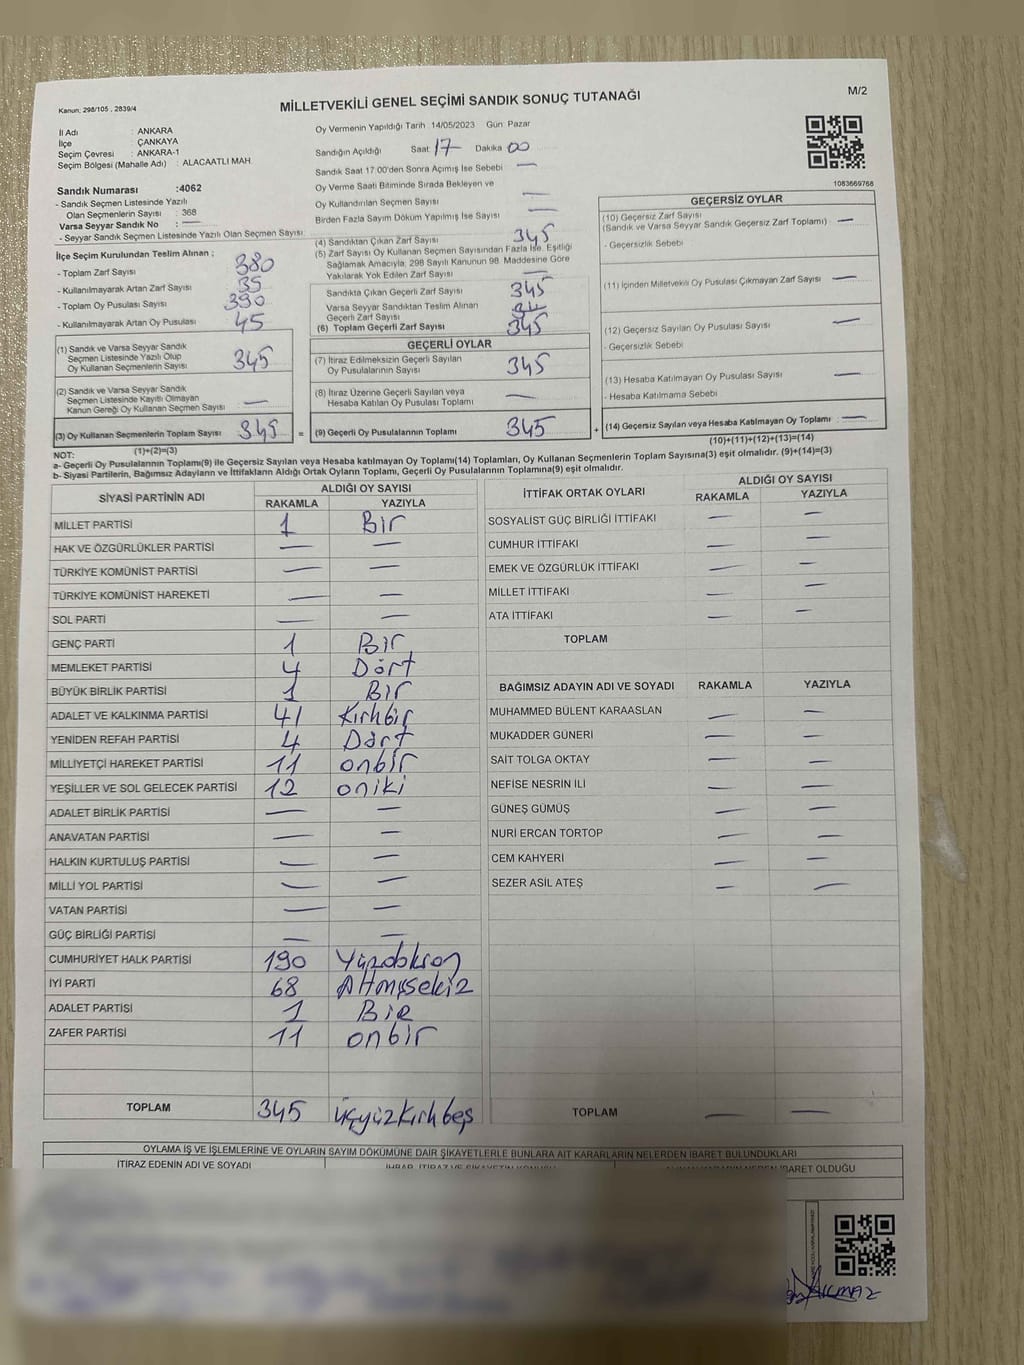 Kanun: 298/105 , 2839/4
MİLLETVEKİLİ GENEL SEÇİMİ SANDIK SONUÇ TUTANAĞI
M/2
İl Adı : ANKARA
İlçe : ÇANKAYA
Seçim Çevresi : ANKARA-1
Seçim Bölgesi (Mahalle Adı) : ALACAATLI MAH.
Sandık Numarası :4062
- Sandık Seçmen Listesinde Yazılı
Olan Seçmenlerin Sayısı : 368
Varsa Seyyar Sandık No : —
- Seyyar Sandık Seçmen Listesinde Yazılı Olan Seçmen Sayısı:
Oy Vermenin Yapıldığı Tarih 14/05/2023 Gün Pazar
Sandığın Açıldığı Saat 17 Dakika 00
Sandık Saat 17:00'den Sonra Açımış İse Sebebi —
Oy Verme Saati Bitiminde Sırada Bekleyen ve
Oy Kullandırılan Seçmen Sayısı —
Birden Fazla Sayım Döküm Yapılmış İse Sayısı —
1083669768
İlçe Seçim Kurulundan Teslim Alınan ;
- Toplam Zarf Sayısı 380
- Kullanılmayarak Artan Zarf Sayısı 35
- Toplam Oy Pusulası Sayısı 390
- Kullanılmayarak Artan Oy Pusulası 45
(1) Sandık ve Varsa Seyyar Sandık
Seçmen Listesinde Yazılı Olup
Oy Kullanan Seçmenlerin Sayısı 345
(2) Sandık ve Varsa Seyyar Sandık
Seçmen Listesinde Kayıtlı Olmayan
Kanun Gereği Oy Kullanan Seçmen Sayısı —
(3) Oy Kullanan Seçmenlerin Toplam Sayısı 345
(1)+(2)=(3)
(4) Sandıktan Çıkan Zarf Sayısı 345
(5) Zarf Sayısı Oy Kullanan Seçmen Sayısından Fazla İse, Eşitliği
Sağlamak Amacıyla, 298 Sayılı Kanunun 98. Maddesine Göre
Yakılarak Yok Edilen Zarf Sayısı —
Sandıkta Çıkan Geçerli Zarf Sayısı 345
Varsa Seyyar Sandıktan Teslim Alınan
Geçerli Zarf Sayısı
(6) Toplam Geçerli Zarf Sayısı 345
GEÇERLİ OYLAR
(7) İtiraz Edilmeksizin Geçerli Sayılan
Oy Pusulalarının Sayısı 345
(8) İtiraz Üzerine Geçerli Sayılan veya
Hesaba Katılan Oy Pusulası Toplamı —
= (9) Geçerli Oy Pusulalarının Toplamı 345 +
GEÇERSİZ OYLAR
(10) Geçersiz Zarf Sayısı
(Sandık ve Varsa Seyyar Sandık Geçersiz Zarf Toplamı) —
- Geçersizlik Sebebi
(11) İçinden Milletvekili Oy Pusulası Çıkmayan Zarf Sayısı —
(12) Geçersiz Sayılan Oy Pusulası Sayısı —
- Geçersizlik Sebebi
(13) Hesaba Katılmayan Oy Pusulası Sayısı —
- Hesaba Katılmama Sebebi
(14) Geçersiz Sayılan veya Hesaba Katılmayan Oy Toplamı —
(10)+(11)+(12)+(13)=(14)
NOT:
a- Geçerli Oy Pusulalarının Toplamı(9) ile Geçersiz Sayılan veya Hesaba Katılmayan Oy Toplamı(14) Toplamları, Oy Kullanan Seçmenlerin Toplam Sayısına(3) eşit olmalıdır. (9)+(14)=(3)
b- Siyasi Partilerin, Bağımsız Adayların ve İttifakların Aldığı Ortak Oyların Toplamı, Geçerli Oy Pusulalarının Toplamına(9) eşit olmalıdır.
SİYASİ PARTİNİN ADI ALDIĞI OY SAYISI
RAKAMLA YAZIYLA
MİLLET PARTİSİ 1 Bir
HAK VE ÖZGÜRLÜKLER PARTİSİ — —
TÜRKİYE KOMÜNİST PARTİSİ — —
TÜRKİYE KOMÜNİST HAREKETİ — —
SOL PARTİ — —
GENÇ PARTİ 1 Bir
MEMLEKET PARTİSİ 4 Dört
BÜYÜK BİRLİK PARTİSİ 1 Bir
ADALET VE KALKINMA PARTİSİ 41 Kırkbir
YENİDEN REFAH PARTİSİ 4 Dört
MİLLİYETÇİ HAREKET PARTİSİ 11 onbir
YEŞİLLER VE SOL GELECEK PARTİSİ 12 oniki
ADALET BİRLİK PARTİSİ — —
ANAVATAN PARTİSİ — —
HALKIN KURTULUŞ PARTİSİ — —
MİLLİ YOL PARTİSİ — —
VATAN PARTİSİ — —
GÜÇ BİRLİĞİ PARTİSİ — —
CUMHURİYET HALK PARTİSİ 190 Yüzdoksan
İYİ PARTİ 68 Altmışsekiz
ADALET PARTİSİ 1 Bir
ZAFER PARTİSİ 11 onbir
TOPLAM 345 üçyüzkırkbeş
İTTİFAK ORTAK OYLARI ALDIĞI OY SAYISI
RAKAMLA YAZIYLA
SOSYALİST GÜÇ BİRLİĞİ İTTİFAKI — —
CUMHUR İTTİFAKI — —
EMEK VE ÖZGÜRLÜK İTTİFAKI — —
MİLLET İTTİFAKI — —
ATA İTTİFAKI — —
TOPLAM
BAĞIMSIZ ADAYIN ADI VE SOYADI RAKAMLA YAZIYLA
MUHAMMED BÜLENT KARAASLAN — —
MUKADDER GÜNERİ — —
SAİT TOLGA OKTAY — —
NEFİSE NESRİN İLİ — —
GÜNEŞ GÜMÜŞ — —
NURİ ERCAN TORTOP — —
CEM KAHYERİ — —
SEZER ASİL ATEŞ — —
TOPLAM — —
OYLAMA İŞ VE İŞLEMLERİNE VE OYLARIN SAYIM DÖKÜMÜNE DAİR ŞİKAYETLERLE BUNLARA AİT KARARLARIN NELERDEN İBARET BULUNDUKLARI
İTİRAZ EDENİN ADI VE SOYADI
İBARET OLDUĞU